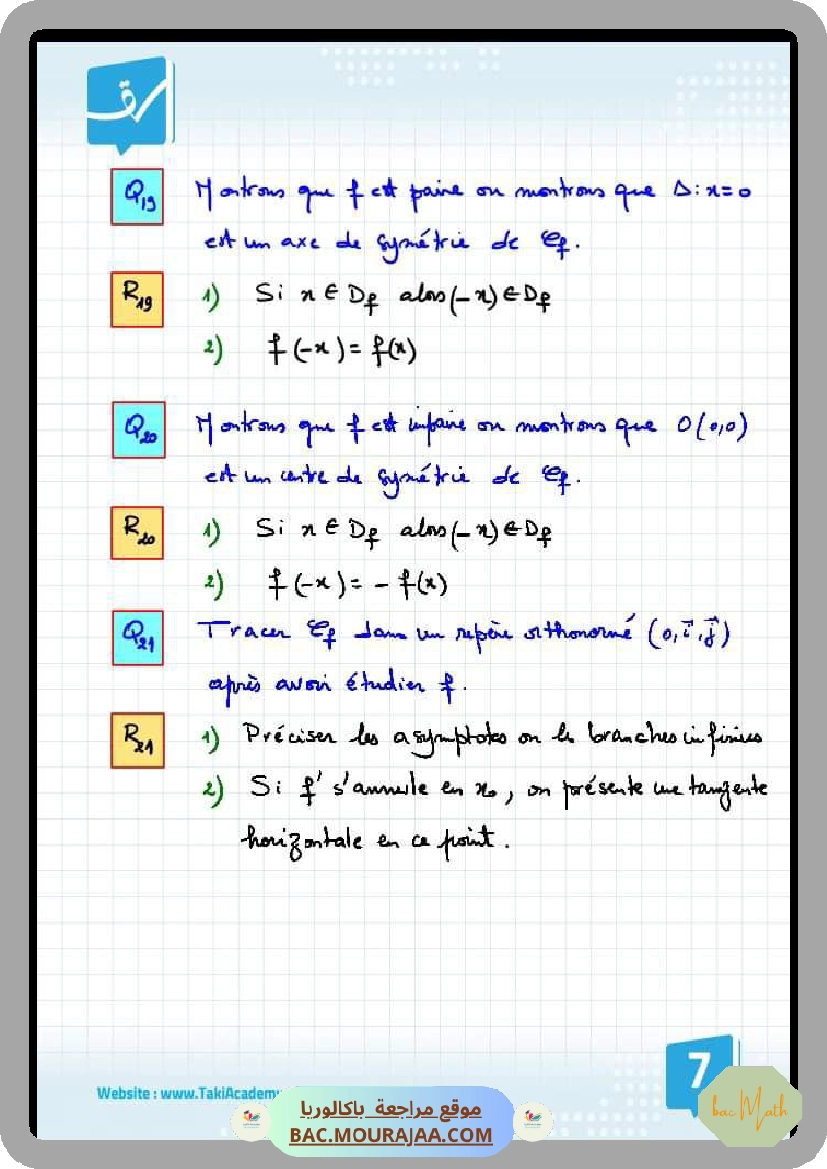 Q19 Montrons que f est paire ou montrons que Δ: x=0
est un axe de symétrie de Cf.
R19 1) Si x ∈ Df alors (-x) ∈ Df
2) f(-x) = f(x)
Q20 Montrons que f est impaire ou montrons que O(0,0)
est un centre de symétrie de Cf.
R20 1) Si x ∈ Df alors (-x) ∈ Df
2) f(-x) = - f(x)
Q21 Tracer Cf dans un repère orthonormé (o, i⃗, j⃗)
après avoir étudier f.
R21 1) Préciser les asymptotes ou les branches infinies
2) Si f' s'annule en x0, on présente une tangente
horizontale en ce point.
7
Website : www.TakiAcadem
موقع مراجعة باكالوريا
BAC.MOURAJAA.COM
bac Math